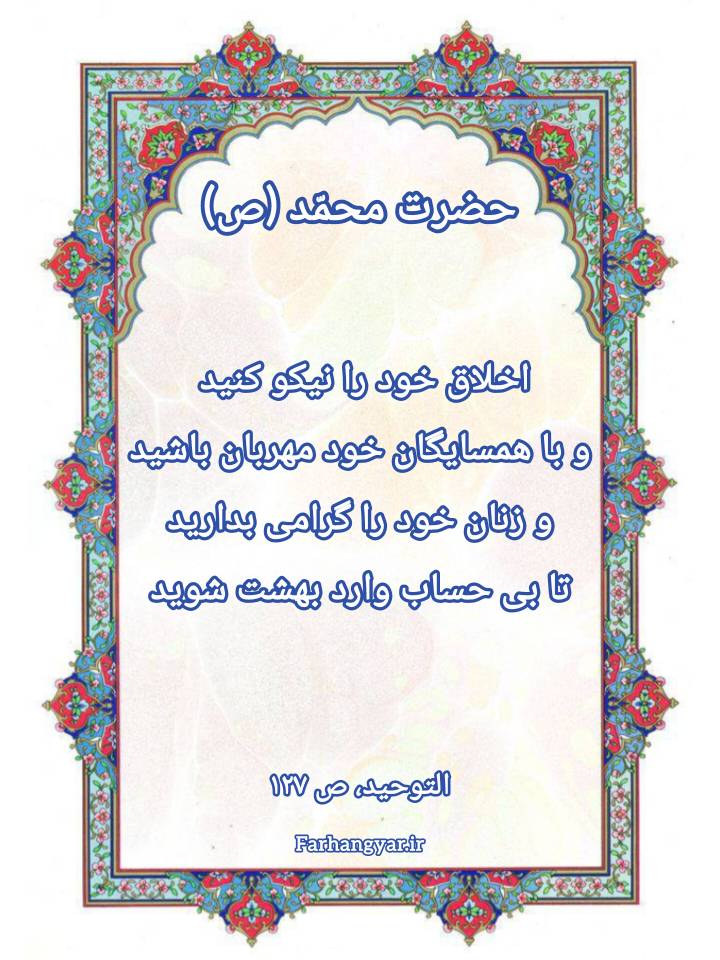 حضرت محمّد (ص)
اخلاق خود را نیکو کنید
و با همسایگان خود مهربان باشید
و زنان خود را گرامی بدارید
تا بی حساب وارد بهشت شوید
التوحید، ص ۱۲۷
Farhangyar.ir